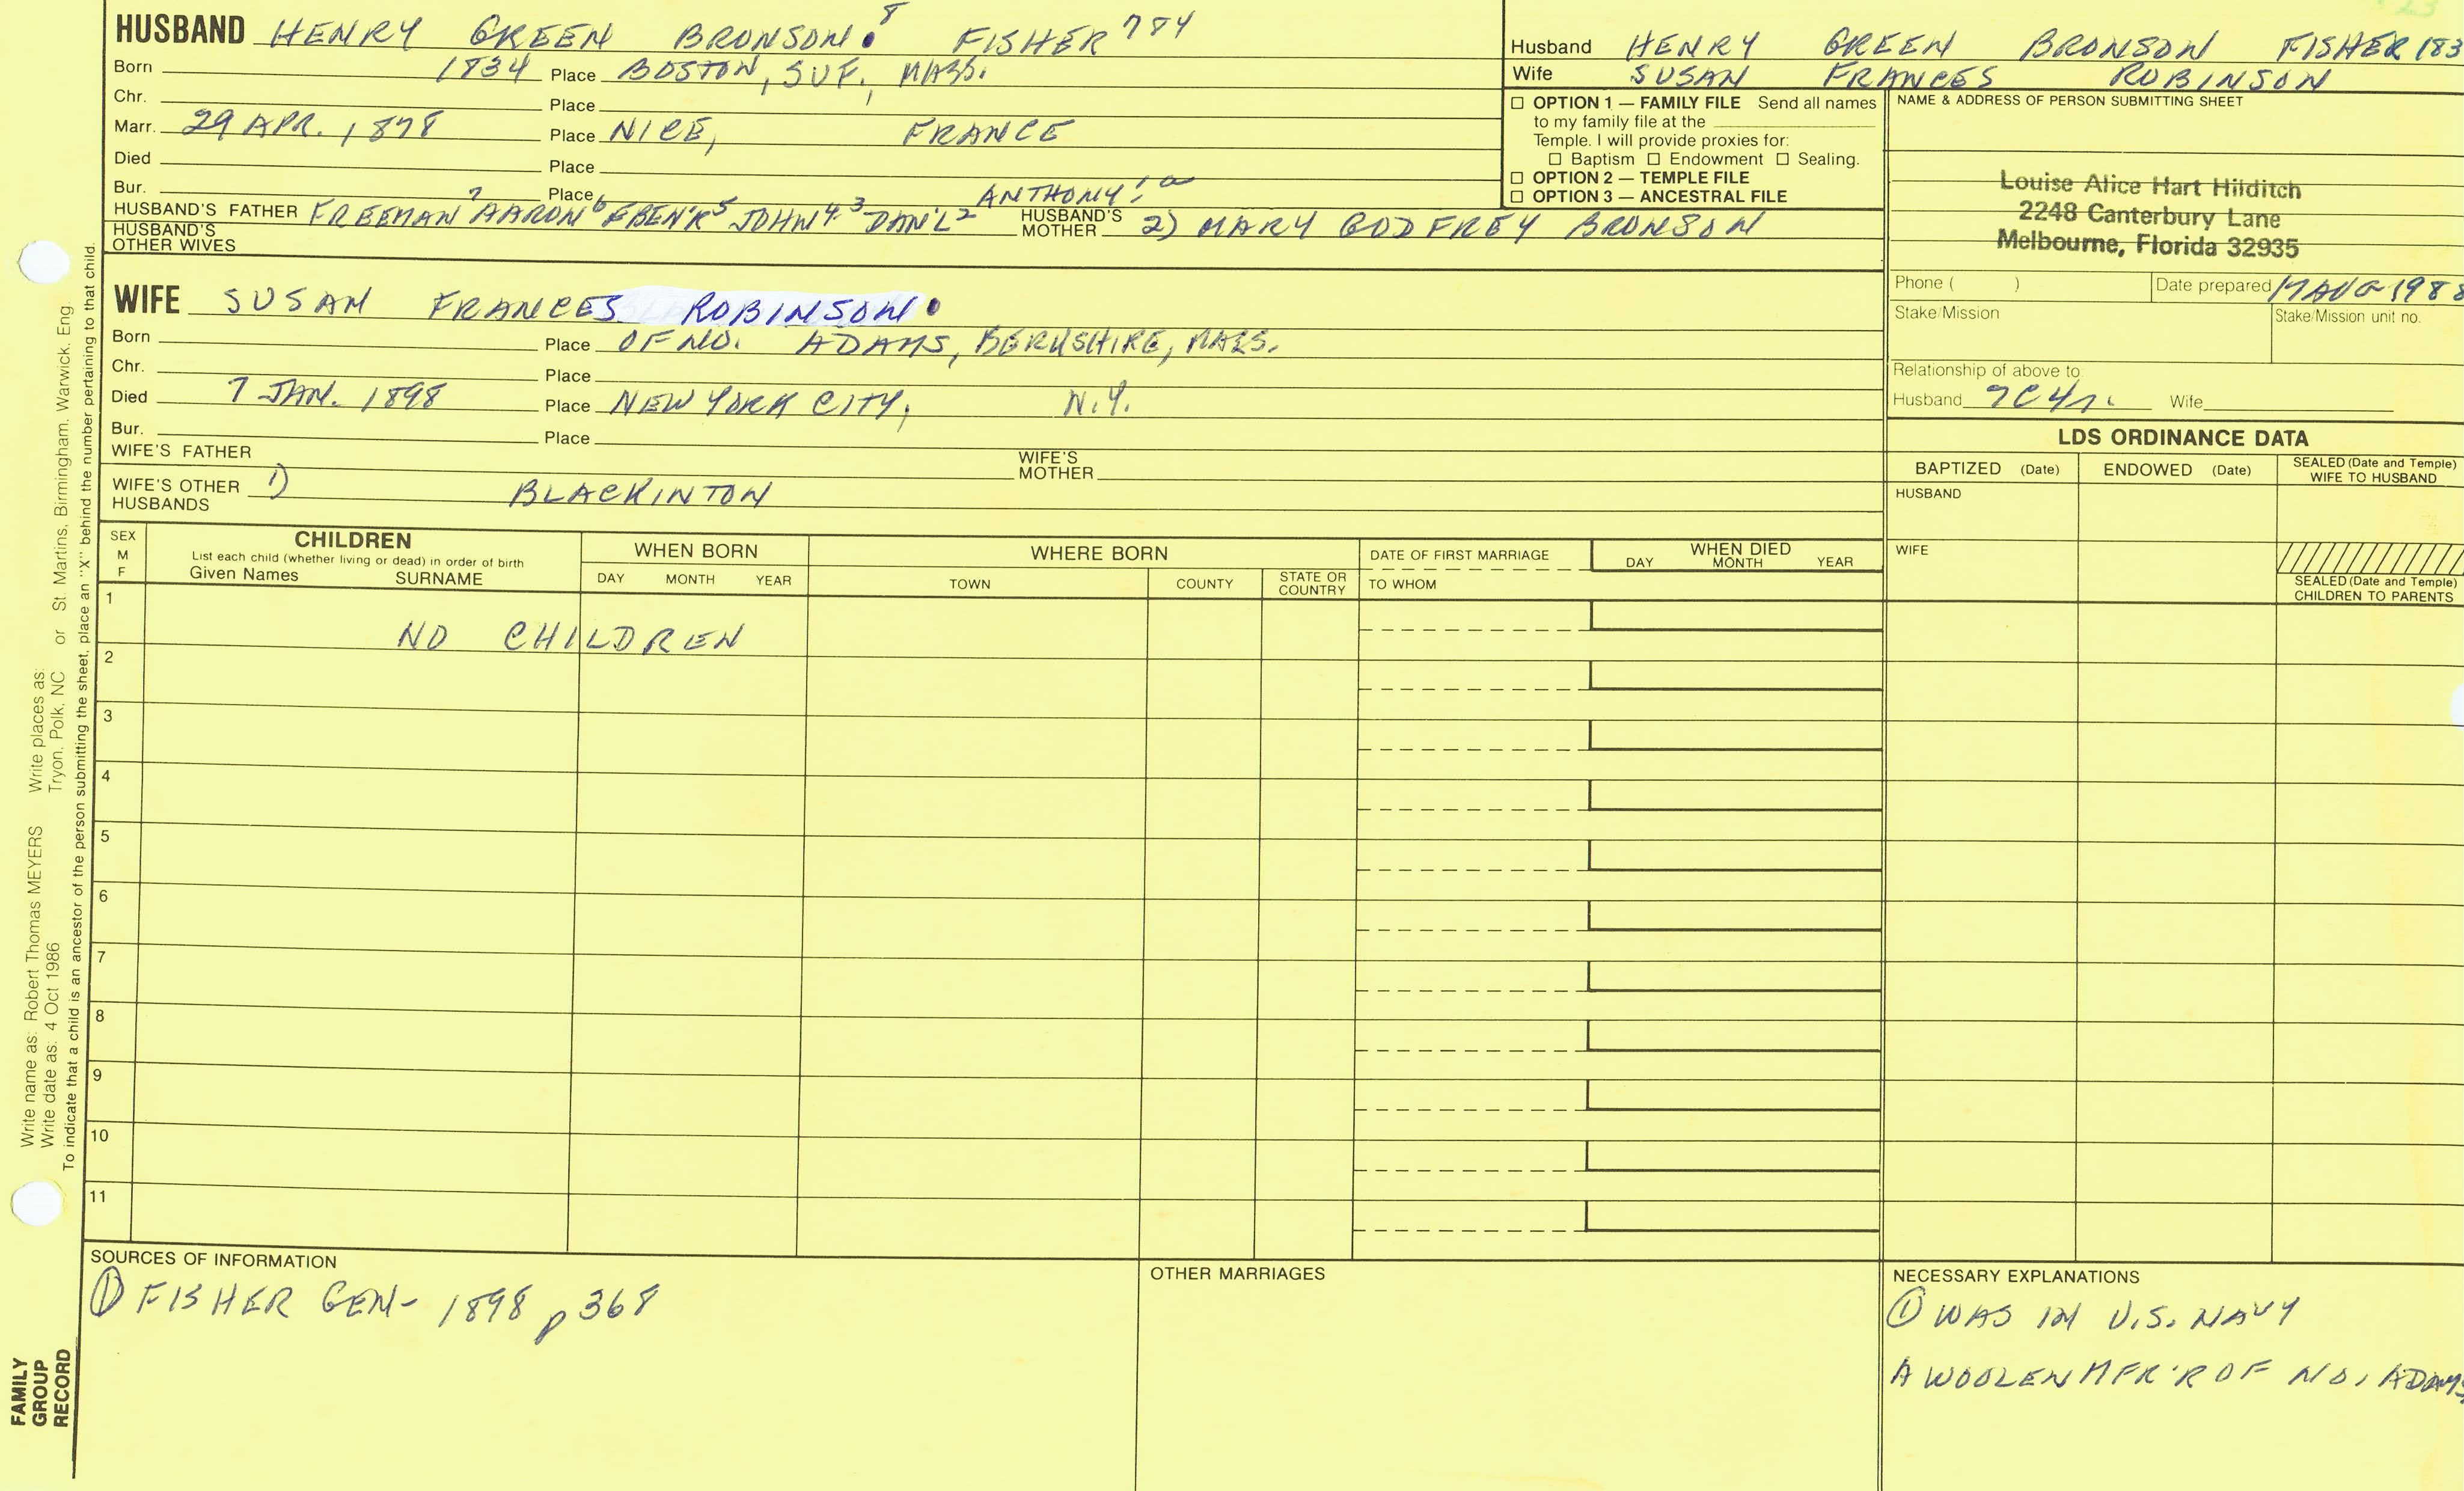 HUSBAND HENRY GREEN BRONSON 8 FISHER 784
Born 1834 Place BOSTON, SUF., MASS.
Chr. Place
Marr. 29 APR. 1878 Place NICE, FRANCE
Died Place
Bur. Place
HUSBAND'S FATHER FREEMAN 7 AARON 6 EBEN'R 5 JOHN 4. 3 DAN'L 2 ANTHONY 1 HUSBAND'S MOTHER 2) MARY GODFREY BRONSON
HUSBAND'S OTHER WIVES
WIFE SUSAN FRANCES ROBINSON
Born Place OF NO. ADAMS, BERKSHIRE, MASS.
Chr. Place
Died 7 JAN. 1898 Place NEW YORK CITY, N.Y.
Bur. Place
WIFE'S FATHER WIFE'S MOTHER
WIFE'S OTHER HUSBANDS 1) BLACKINTON
Husband HENRY GREEN BRONSON FISHER 183
Wife SUSAN FRANCES ROBINSON
☐ OPTION 1 — FAMILY FILE Send all names
to my family file at the
Temple. I will provide proxies for:
☐ Baptism ☐ Endowment ☐ Sealing.
☐ OPTION 2 — TEMPLE FILE
☐ OPTION 3 — ANCESTRAL FILE
NAME & ADDRESS OF PERSON SUBMITTING SHEET
Louise Alice Hart Hilditch
2248 Canterbury Lane
Melbourne, Florida 32935
Phone ( ) Date prepared 17 AUG 1988
Stake/Mission Stake/Mission unit no.
Relationship of above to
Husband 7C4r. Wife
LDS ORDINANCE DATA
BAPTIZED (Date) ENDOWED (Date) SEALED (Date and Temple) WIFE TO HUSBAND
HUSBAND
WIFE
SEALED (Date and Temple) CHILDREN TO PARENTS
SEX M F
CHILDREN
List each child (whether living or dead) in order of birth
Given Names SURNAME
WHEN BORN
DAY MONTH YEAR
WHERE BORN
TOWN COUNTY STATE OR COUNTRY
DATE OF FIRST MARRIAGE
TO WHOM
WHEN DIED
DAY MONTH YEAR
1
NO CHILDREN
2
3
4
5
6
7
8
9
10
11
SOURCES OF INFORMATION
① FISHER GEN- 1898 p 368
OTHER MARRIAGES
NECESSARY EXPLANATIONS
① WAS IN U.S. NAVY
A WOOLEN MFR'R OF NO. ADAMS
Write name as: Robert Thomas MEYERS Write places as:
Write date as: 4 Oct 1986 Tryon, Polk, NC or St. Martins, Birmingham, Warwick, Eng
To indicate that a child is an ancestor of the person submitting the sheet, place an "X" behind the number pertaining to that child.
FAMILY
GROUP
RECORD